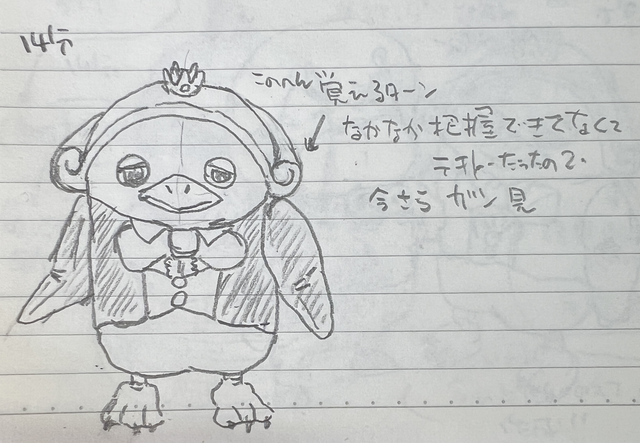 14行
このへん覚えるターン
なかなか把握できてなくて
テキトーだったので
今さら ガン見